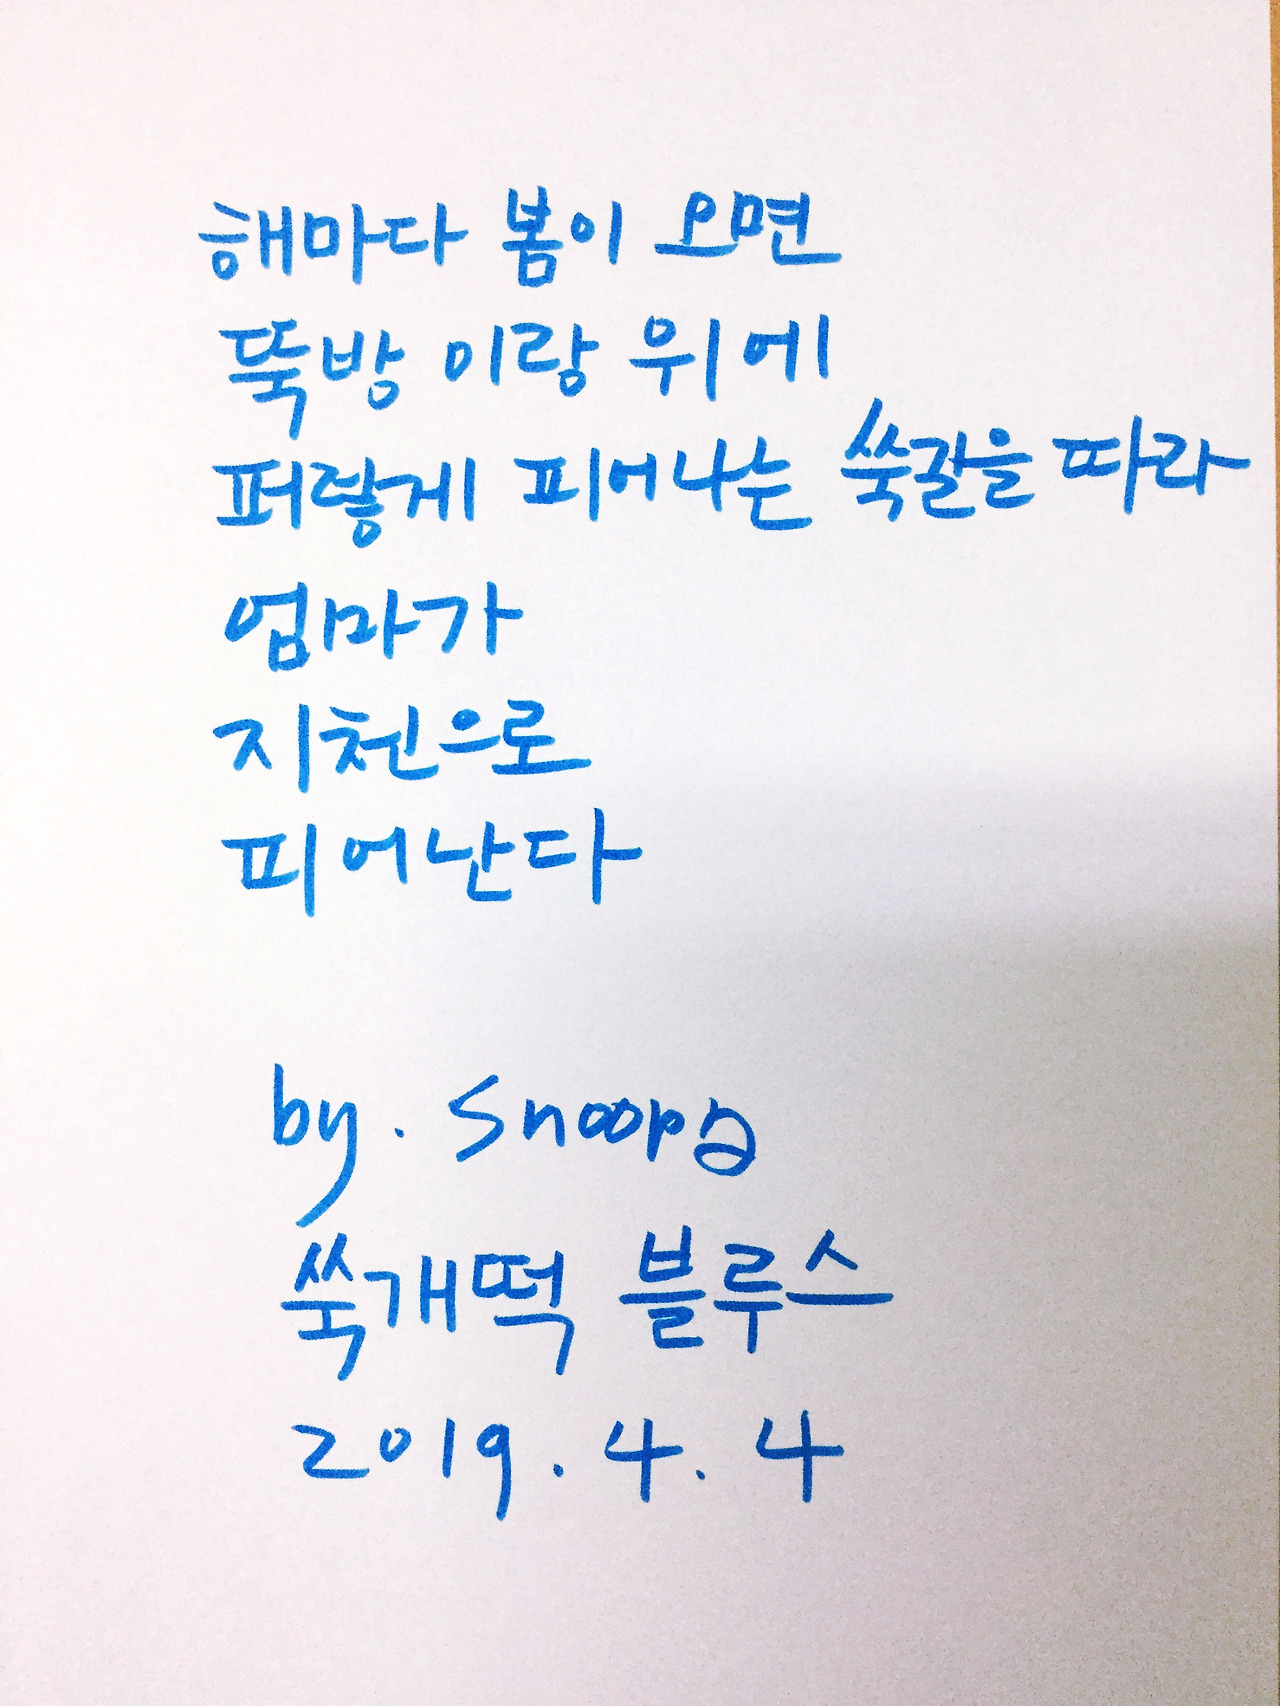 해마다 봄이 오면
뚝방 이랑 위에
퍼렇게 피어나는 쑥길을 따라
엄마가
지천으로
피어난다
by. Snoopy
쑥개떡 블루스
2019. 4. 4